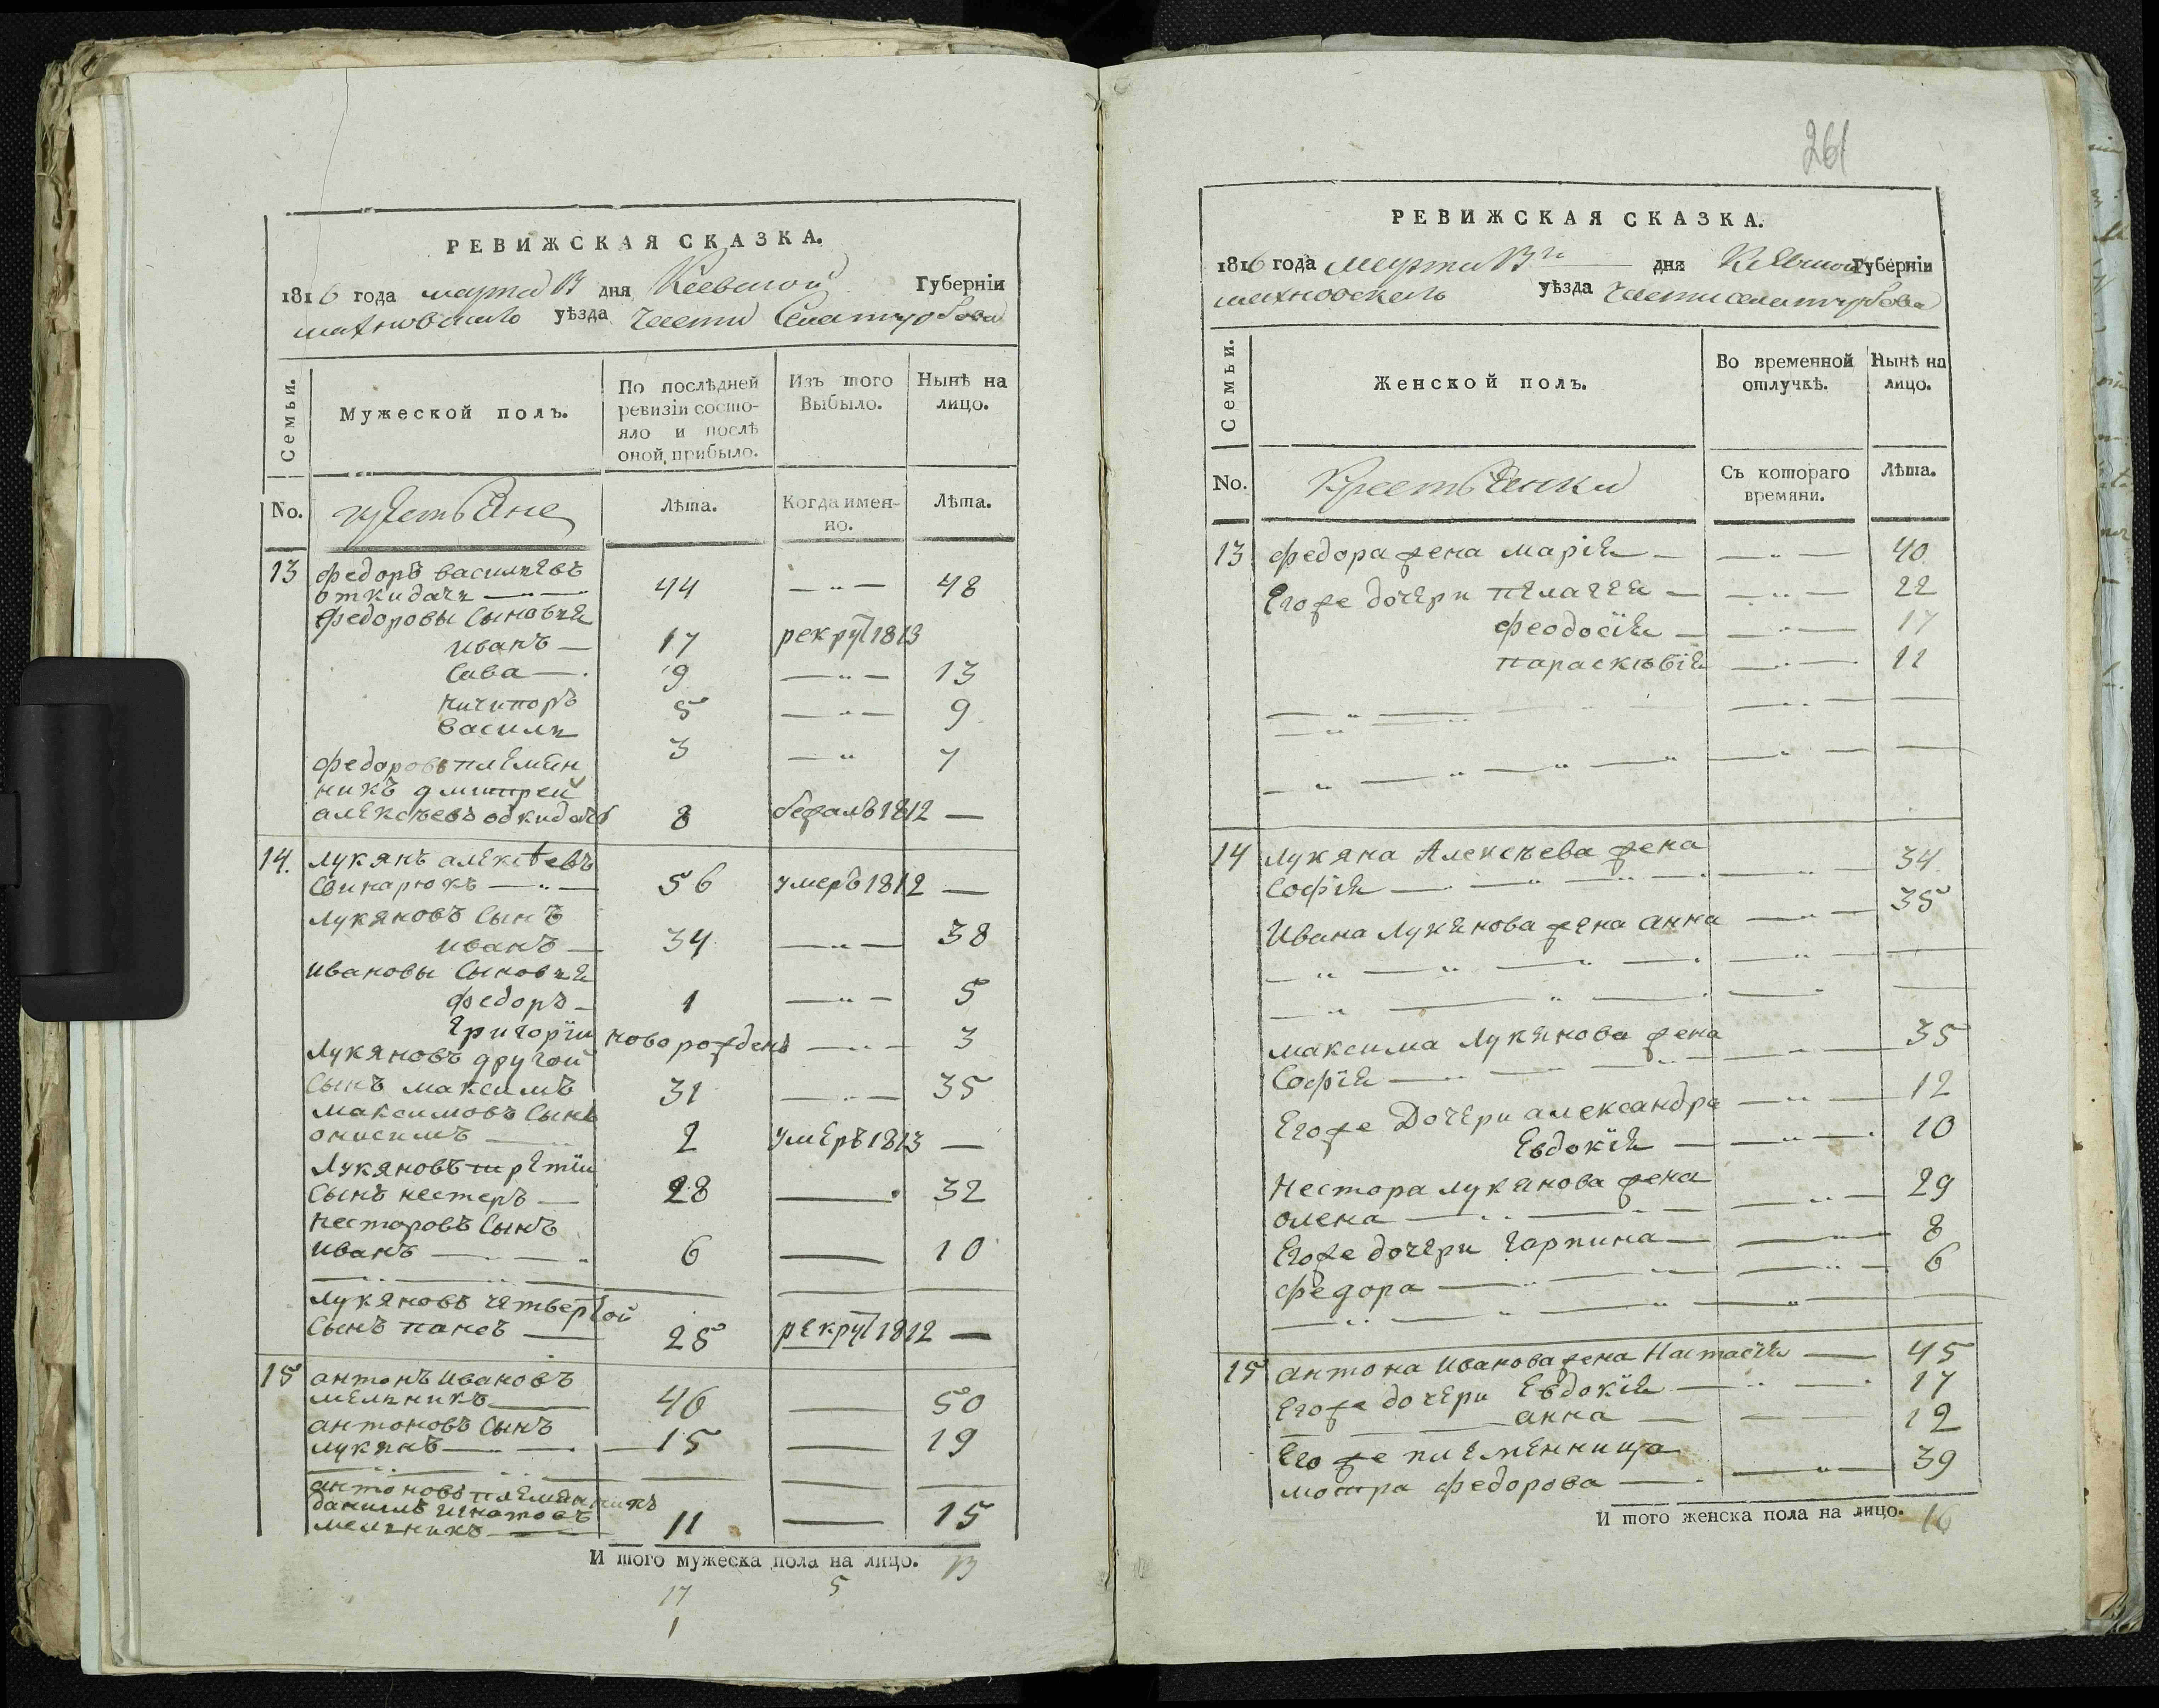 РЕВИЖСКАЯ СКАЗКА.
1816 года марта 13 дня Киевской Губерніи
махновскаго уѣзда части села турбова
Семьи.
Мужеской полъ.
По послѣдней ревизіи состояло и послѣ оной прибыло.
Изъ того Выбыло.
Нынѣ на лицо.
No. крестьяне Лѣта. Когда именно. Лѣта.
13 федоръ васильевъ
откидачь 44 — 48
федоровы сыновья
иванъ — 17 рекрутъ 1813
Сава — 9 — 13
ничипоръ 5 — 9
василь 3 — 7
федоровъ племян
никъ дмитрей
алексѣевъ одкидачъ 8 бежалъ 1812 —
14. лукянъ алексѣевъ
свинарюкъ — 56 умеръ 1812 —
лукяновъ сынъ
иванъ — 34 — 38
ивановы сыновья
федоръ — 1 — 5
григорій новорожденъ — 3
лукяновъ другой
сынъ максимъ 31 — 35
максимовъ сынъ
онисимъ 2 умеръ 1813 —
лукяновъ третій
сынъ нестеръ — 28 — 32
несторовъ сынъ
иванъ — 6 — 10
лукяновъ четвертой
сынъ панасъ — 25 рекрутъ 1812 —
15 антонъ ивановъ
мельникъ 46 — 50
антоновъ сынъ
лукянъ — 15 — 19
антоновъ племянникъ
данилъ игнатовъ
мельникъ — 11 — 15
И того мужеска пола на лицо. 13
17 5
1
261
РЕВИЖСКАЯ СКАЗКА.
1816 года марта 13го дня Киевской Губерніи
махновскаго уѣзда части села турбова
Семьи.
Женской полъ.
Во временной отлучкѣ.
Нынѣ на лицо.
No. Крестьянки Съ котораго времяни. Лѣта.
13 федора жена марія — 40
Егоже дочери пелагея — 22
феодосія — 17
параскѣвія — 11
14 Лукяна Алексѣева жена
софія — 34
Ивана Лукянова жена анна — 35
максима Лукянова жена
софія — 35
Егоже Дочери александра — 12
Евдокія — 10
Нестора лукянова жена
олена — 29
Егоже дочери гарпина — 8
федора — 6
15 антона иванова жена Настасія — 45
Егоже дочери Евдокія — 17
анна — 12
Егоже племенница
мотра федорова — 39
И того женска пола на лицо. 16